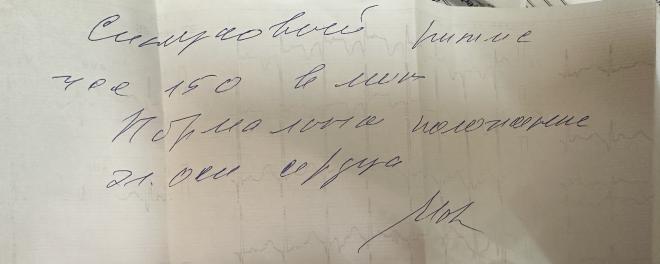 Синусовый ритм
чсс 150 в мин
Нормальное положение
эл. оси сердца